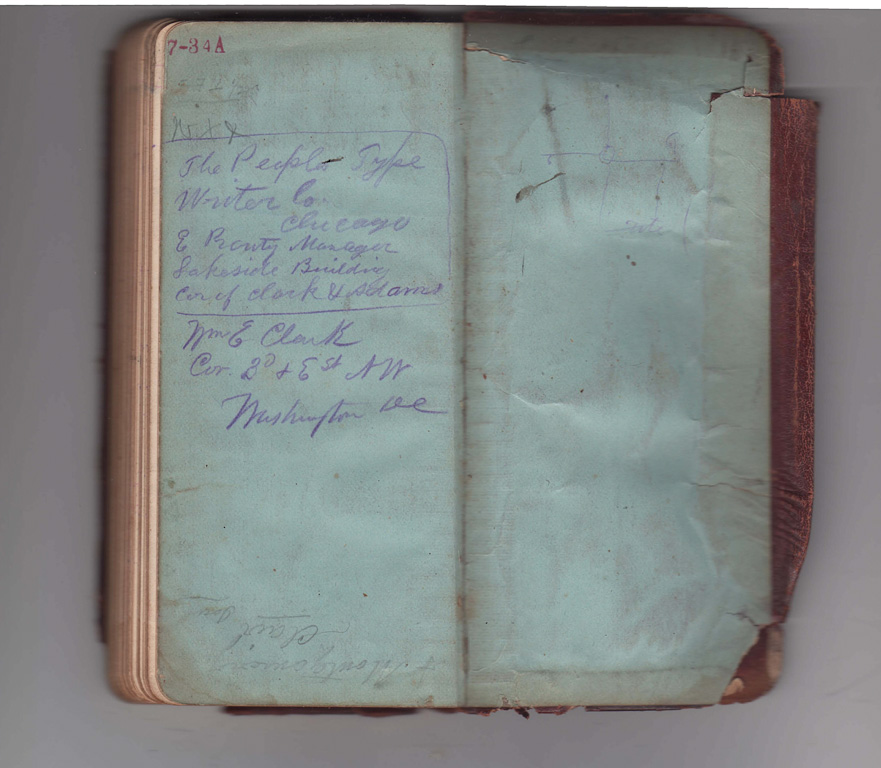 7-34A
The People Type
Writer Co.
Chicago
E Prouty Manager
Lakeside Building
Cor of Clark & Adams
Wm E Clark
Cor. 3D & E St NW
Washington DC
Clark
Montgomery